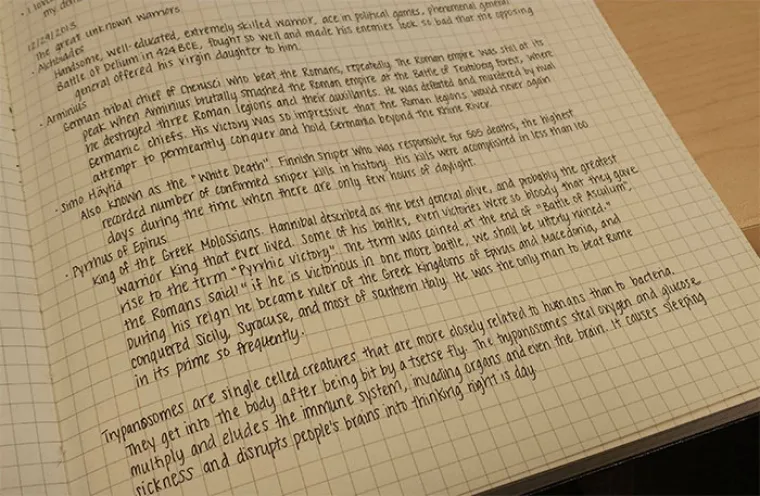 · I lov
my de
12/29/2013
The great unknown warriors
· Alchibiades
Handsome, well-educated, extremely skilled warrior, ace in political games. Phenomenal general
Battle of Delium in 424 BCE, fought so well and made his enemies look so bad that the opposing
general offered his virgin daughter to him.
· Arminius
German tribal chief of Cherusci who beat the Romans, repeatedly. The Roman empire was still at its
peak when Arminius brutally smashed the Roman empire at the Battle of Teutoberg Forest, where
he destroyed three Roman legions and their auxiliaries. He was defeated and murdered by rival
Germanic chiefs. His victory was so impressive that the Roman legions would never again
attempt to permeantly conquer and hold Germania beyond the Rhine River.
· Simo Häyhä
Also known as the "White Death". Finnish Sniper who was responsible for 505 deaths, the highest
recorded number of confirmed sniper kills in history. His kills were acomplished in less than 100
days during the time when there are only few hours of daylight.
· Pyrrhus of Epirus
King of the Greek Molossians. Hannibal described as the best general alive, and probably the greatest
warrior King that ever lived. Some of his battles, even victories were so bloody that they gave
rise to the term "Pyrrhic victory". The term was coined at the end of "Battle of Asculum",
the Romans said! "if he is victorious in one more battle, we shall be utterly ruined."
During his reign he became ruler of the Greek Kingdoms of Epirus and Macedonia, and
conquered Sicily, Syracuse, and most of southern Italy. He was the only man to beat Rome
in its prime so frequently.
Trypanosomes are single celled creatures that are more closely related to humans than to bacteria.
They get into the body after being bit by a tsetse fly. The trypanosomes steal oxygen and glucose
multiply and eludes the immune system, invading organs and even the brain. It causes sleeping
sickness and disrupts people's brains into thinking night is day.